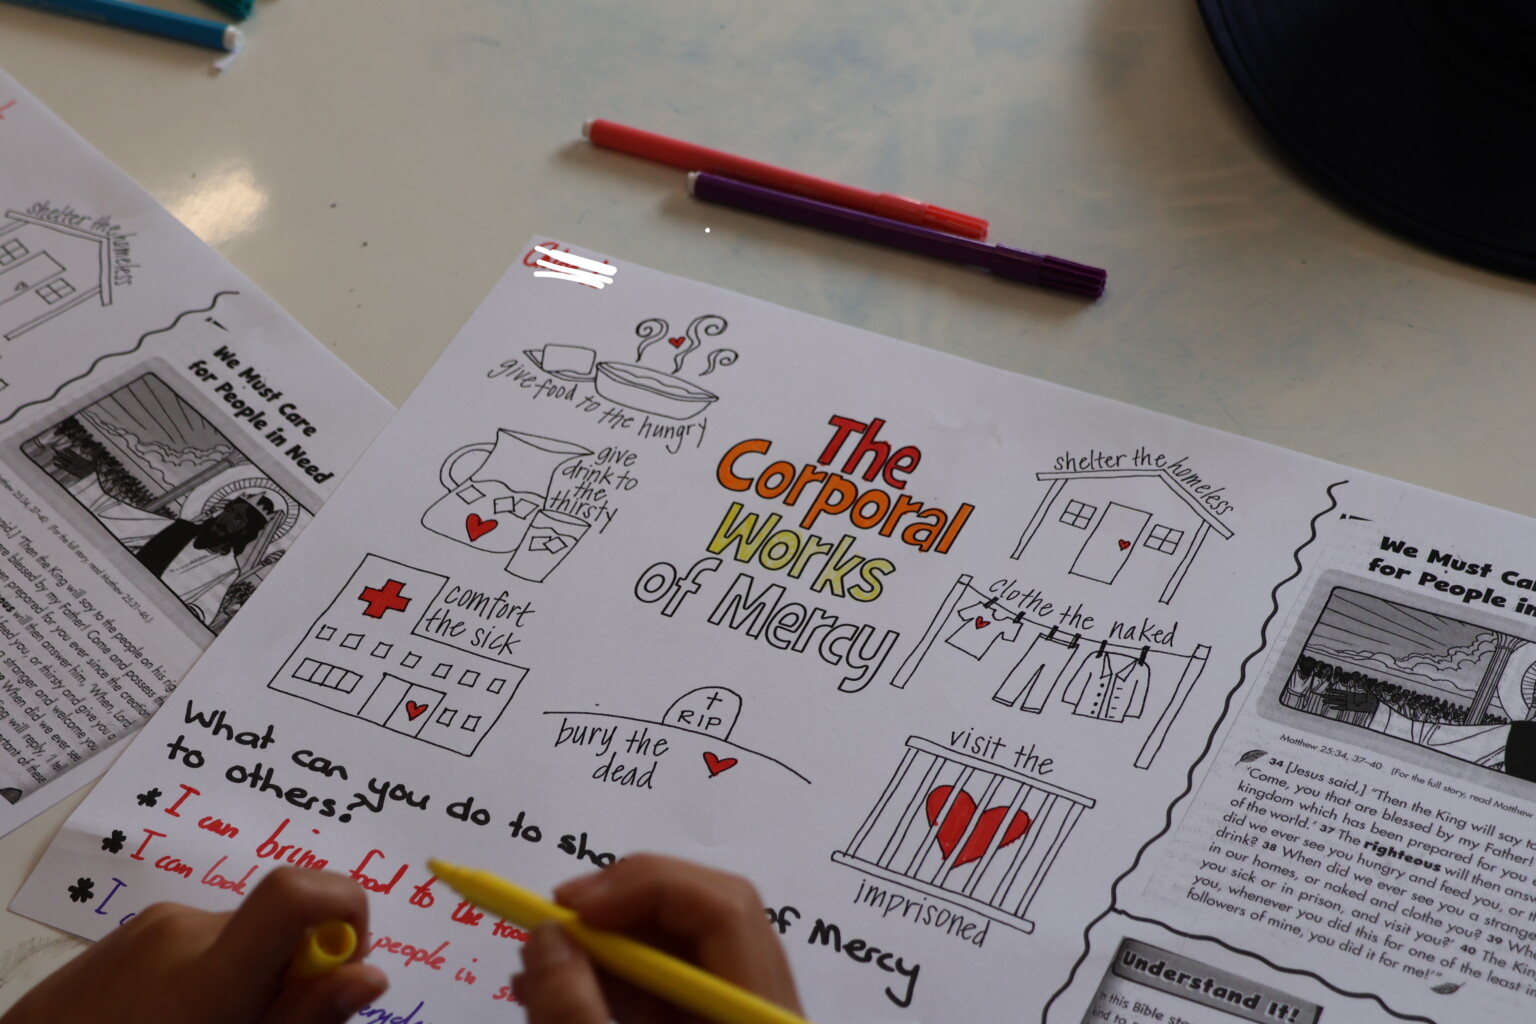 shelter the homeless
We Must Care
for People in Need
Matthew 25:34, 37-40 (For the full story, read Matthew 25:31-46.)
said,] "Then the King will say to the people on his rig
are blessed by my Father! Come and possess the
been prepared for you ever since the creatio
will then answer him, 'When, Lord,
feed you, or thirsty and give you
a stranger and welcome you
When did we ever see
King will reply, 'I tel
important of these
give food to the hungry
give
drink to
the
thirsty
comfort
the sick
The
Corporal
Works
of Mercy
shelter the homeless
clothe the naked
RIP
bury the
dead
visit the
imprisoned
What can you do to
to others?
of Mercy
* I can bring food to the
* I can look
people in
* I
We Must Ca
for People in
Matthew 25:34, 37-40 (For the full story, read Matthew
34 [Jesus said,] "Then the King will say to
'Come, you that are blessed by my Father!
kingdom which has been prepared for you e
of the world.' 37 The righteous will then answ
did we ever see you hungry and feed you, or
drink? 38 When did we ever see you a strange
in our homes, or naked and clothe you? 39 Wh
you sick or in prison, and visit you?' 40 The Kin
you, whenever you did this for one of the least i
followers of mine, you did it for me!'"
Understand It!
In this Bible sto